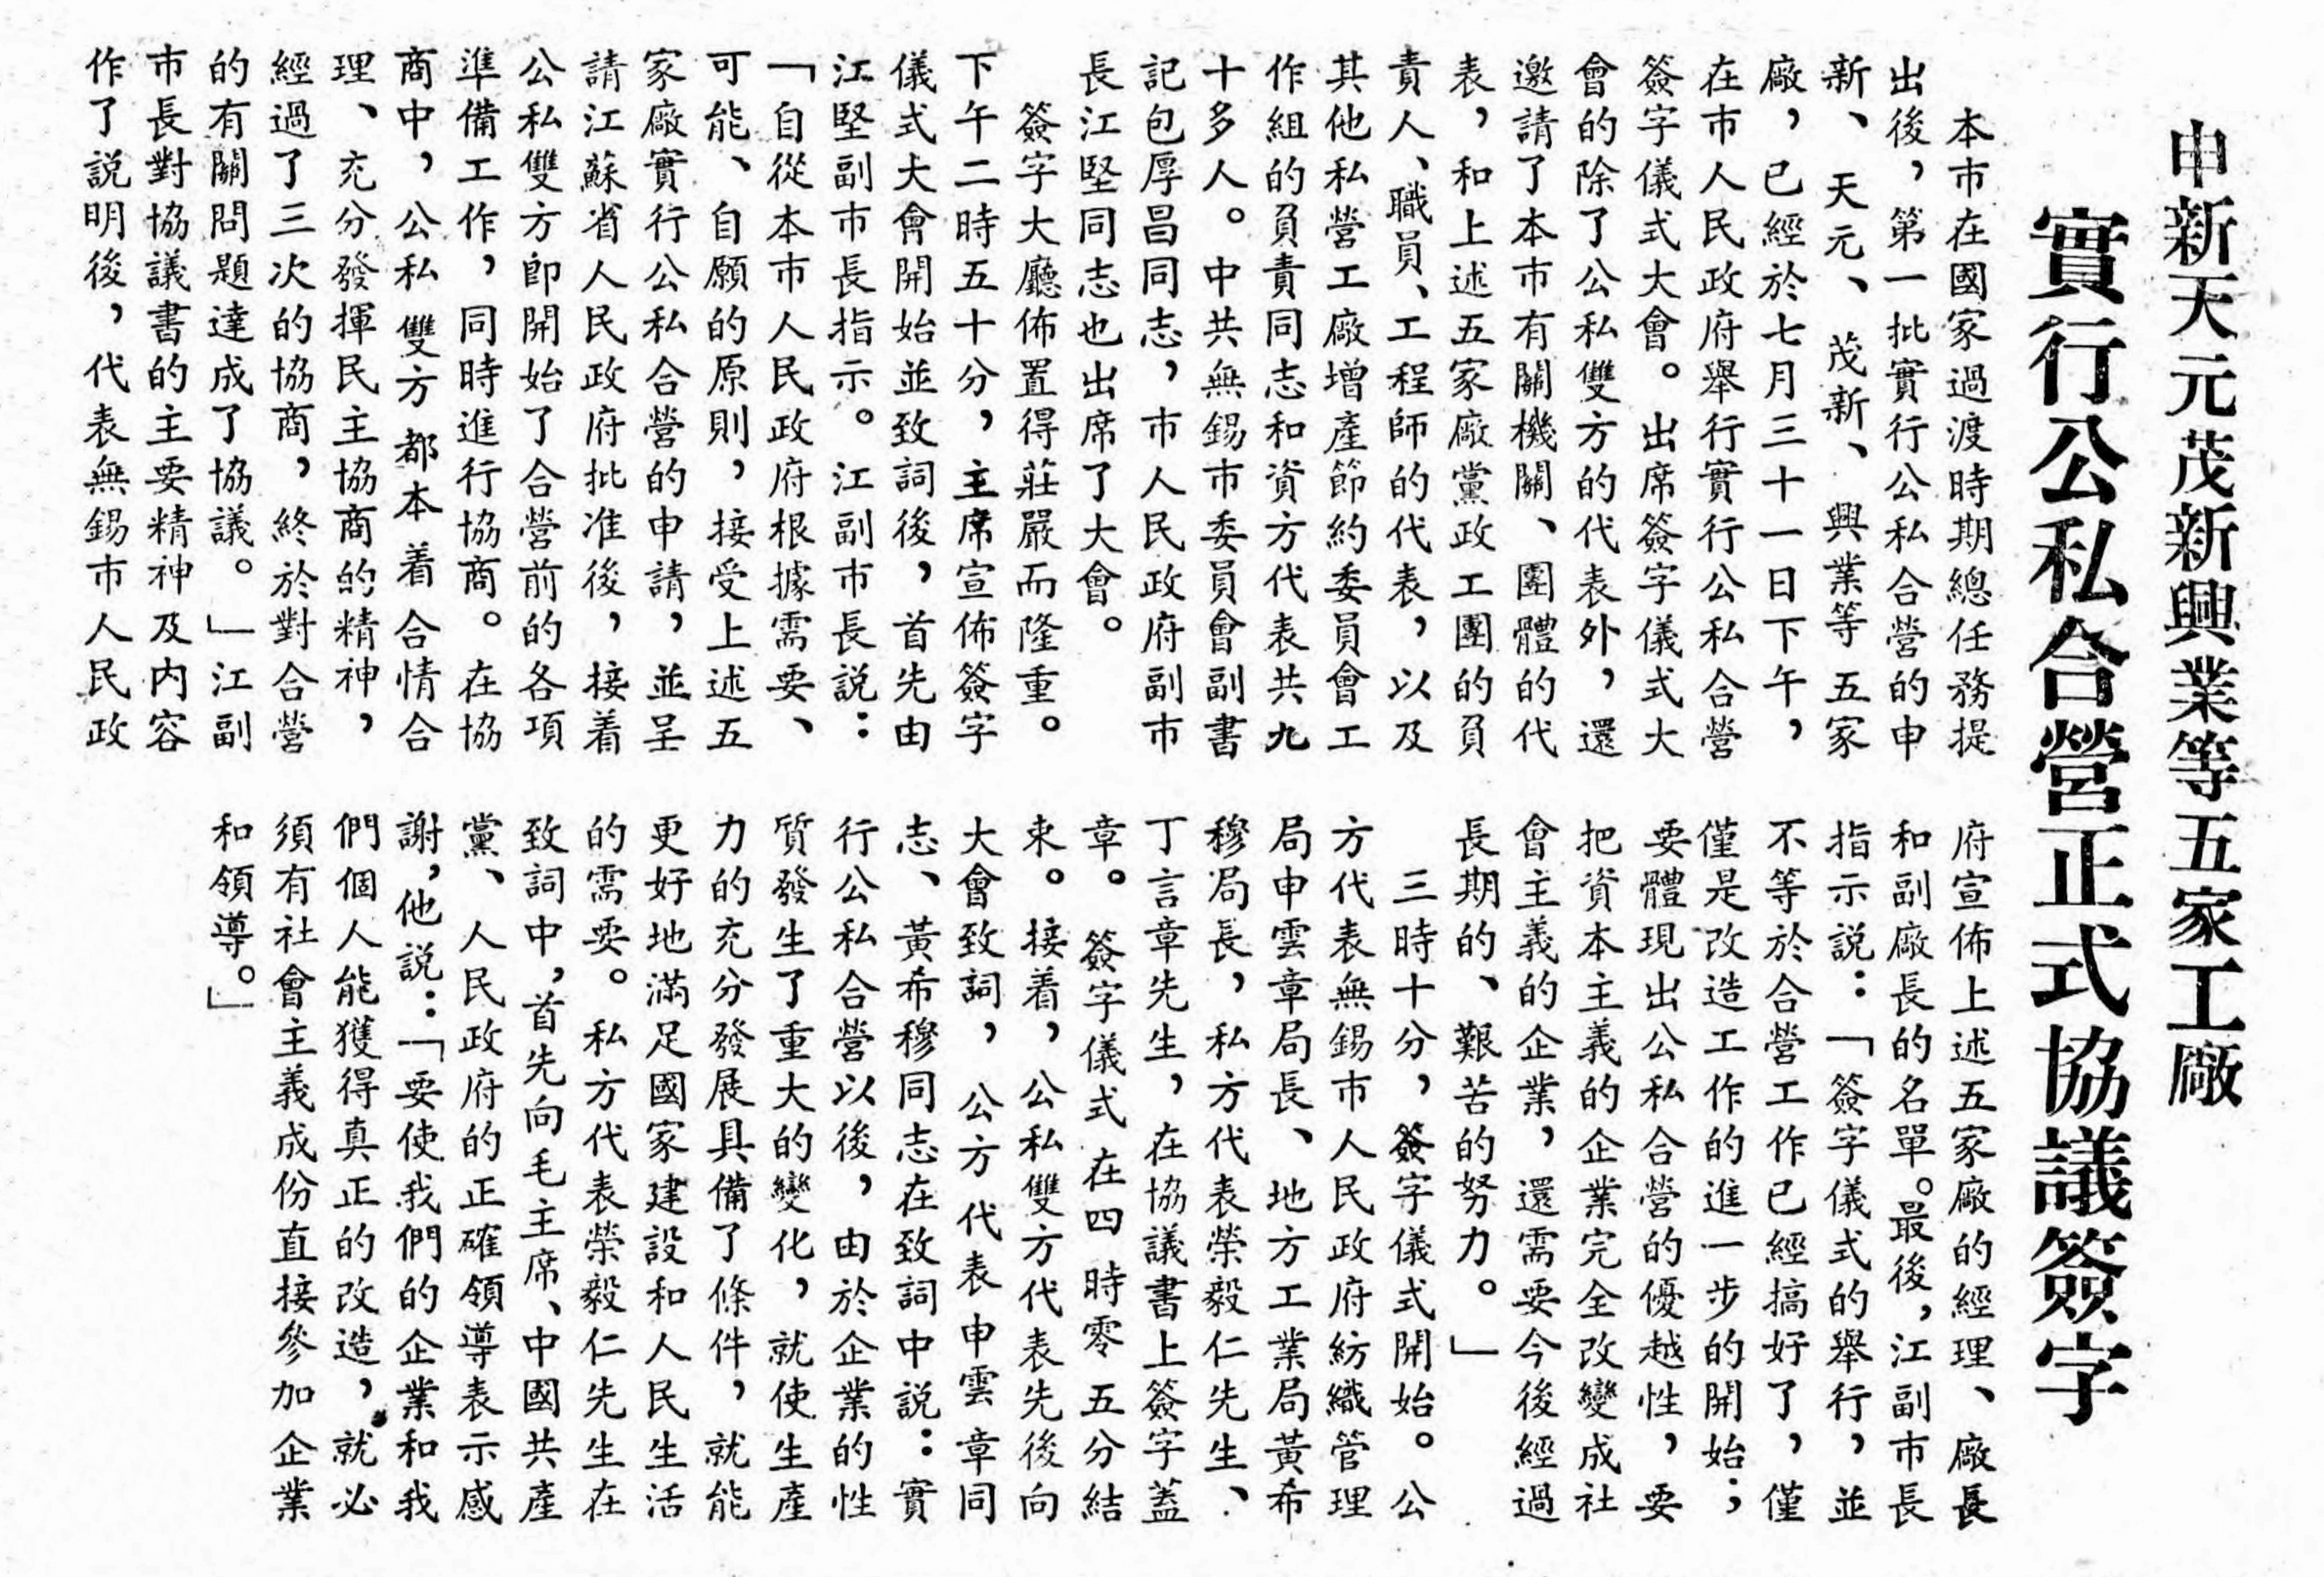 申新天元茂新興業等五家工廠
實行公私合營正式協議簽字
本市在國家過渡時期總任務提
出後，第一批實行公私合營的申
新、天元、茂新、興業等五家
廠，已經於七月三十一日下午，
在市人民政府舉行實行公私合營
簽字儀式大會。出席簽字儀式大
會的除了公私雙方的代表外，還
邀請了本市有關機關、團體的代
表，和上述五家廠黨政工團的負
責人、職員、工程師的代表，以及
其他私營工廠增產節約委員會工
作組的負責同志和資方代表共九
十多人。中共無錫市委員會副書
記包厚昌同志，市人民政府副市
長江堅同志也出席了大會。
簽字大廳佈置得莊嚴而隆重。
下午二時五十分，主席宣佈簽字
儀式大會開始並致詞後，首先由
江堅副市長指示。江副市長説：
「自從本市人民政府根據需要、
可能、自願的原則，接受上述五
家廠實行公私合營的申請，並呈
請江蘇省人民政府批准後，接着
公私雙方即開始了合營前的各項
準備工作，同時進行協商。在協
商中，公私雙方都本着合情合
理、充分發揮民主協商的精神，
經過了三次的協商，終於對合營
的有關問題達成了協議。」江副
市長對協議書的主要精神及内容
作了説明後，代表無錫市人民政
府宣佈上述五家廠的經理、廠長
和副廠長的名單。最後，江副市長
指示説：「簽字儀式的舉行，並
不等於合營工作已經搞好了，僅
僅是改造工作的進一步的開始；
要體現出公私合營的優越性，要
把資本主義的企業完全改變成社
會主義的企業，還需要今後經過
長期的、艱苦的努力。」
三時十分，簽字儀式開始。公
方代表無錫市人民政府紡織管理
局申雲章局長、地方工業局黃希
穆局長，私方代表榮毅仁先生、
丁言章先生，在協議書上簽字蓋
章。簽字儀式在四時零五分結
束。接着，公私雙方代表先後向
大會致詞，公方代表申雲章同
志、黃希穆同志在致詞中説：實
行公私合營以後，由於企業的性
質發生了重大的變化，就使生產
力的充分發展具備了條件，就能
更好地滿足國家建設和人民生活
的需要。私方代表榮毅仁先生在
致詞中，首先向毛主席、中國共產
黨、人民政府的正確領導表示感
謝，他説：「要使我們的企業和我
們個人能獲得真正的改造，就必
須有社會主義成份直接參加企業
和領導。」